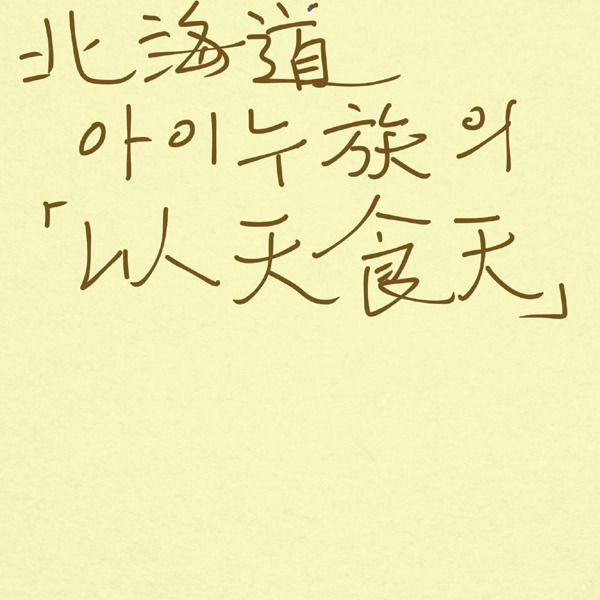 北海道
아이누族의
「以天食天」